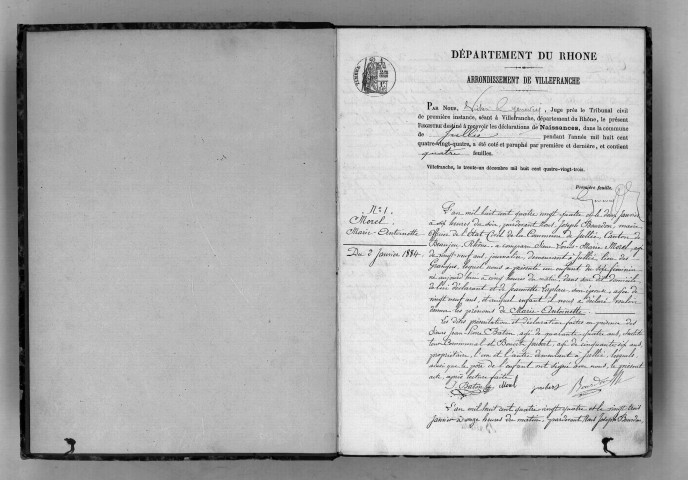 DÉPARTEMENT DU RHONE
ARRONDISSEMENT DE VILLEFRANCHE
PAR NOUS, Juge près le Tribunal civil
de première instance, séant à Villefranche, département du Rhône, le présent
REGISTRE destiné à recevoir les déclarations de Naissances, dans la commune
de Jullié pendant l'année mil huit cent
quatre-vingt-quatre, a été coté et paraphé par première et dernière, et contient
quatre feuilles.
Villefranche, le trente-un décembre mil huit cent quatre-vingt-trois.
Première feuille.
N° 1.
Morel
Marie-Antoinette
Du 2 Janvier 1884
L'an mil huit cent quatre vingt quatre et le deux Janvier
à heures du soir, pardevant Nous Joseph Bourdon, maire
officier de l'Etat Civil de la Commune de Jullié, Canton de
Beaujeu, Rhône, a comparu Sieur Louis-Marie Morel, âgé
de vingt neuf ans, journalier, demeurant à Jullié, lieu des
lequel nous a présenté un enfant du sexe féminin
né aujourd'hui à cinq heures du matin, dans son dit domicile
de lui déclarant et de Jeannette son épouse, âgée de
vingt neuf ans, et auquel enfant il nous a déclaré vouloir
donner les prénoms de Marie-Antoinette.
Les dites présentation et déclaration faites en présence des
Sieurs Jean Pierre Baton, âgé de quarante quatre ans, Institu
teur Communal et Benoît Jaubert, âgé de cinquante six ans,
propriétaire, l'un et l'autre demeurant à Jullié, lesquels
ainsi que le père de l'enfant ont signé avec nous le présent
acte, après lecture faite.
Baton Morel Jaubert Bourdon
L'an mil huit cent quatre vingt quatre et le vingt trois
Janvier à onze heures du matin, pardevant Nous Joseph Bourdon